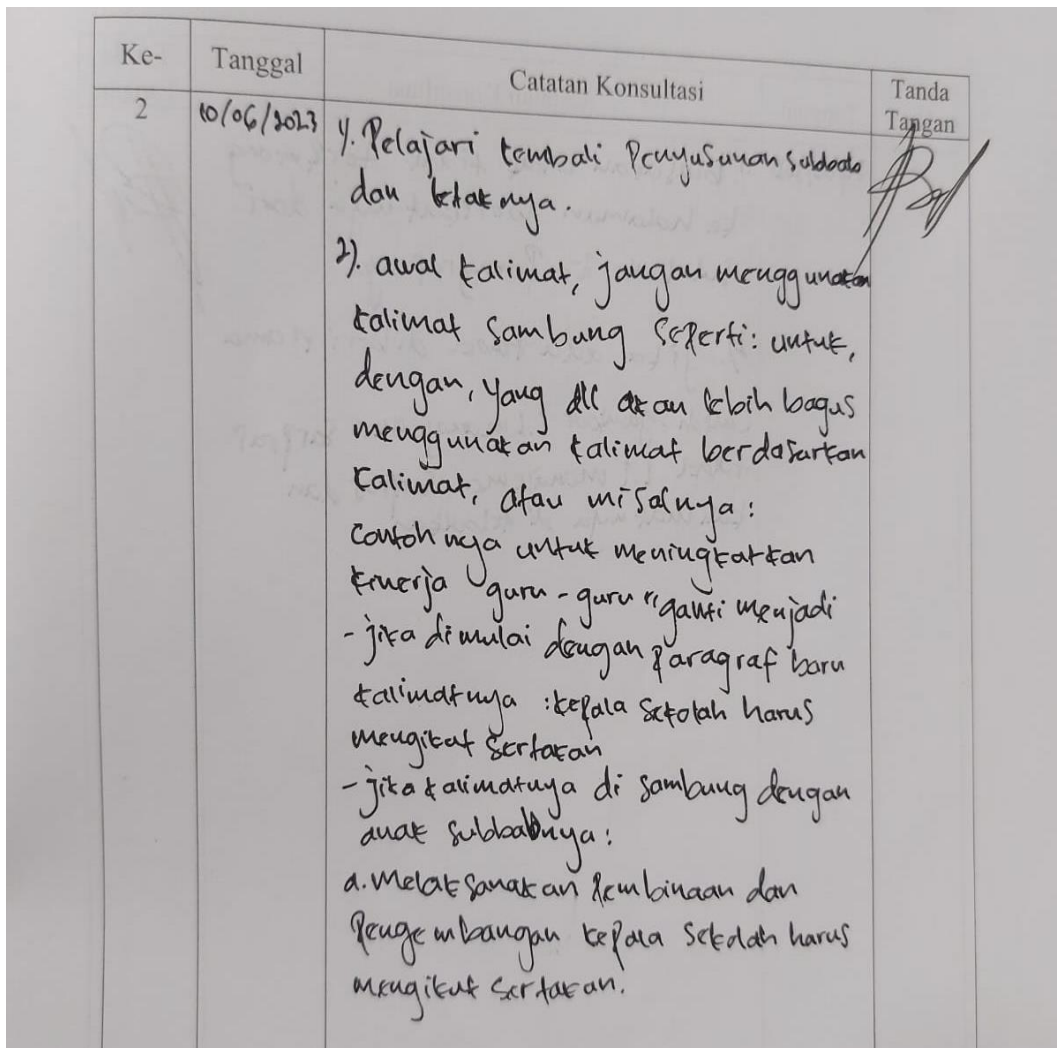 Ke- Tanggal Catatan Konsultasi Tanda Tangan
2 10/06/2023 1). Pelajari kembali Penyusunan subbab
dan letaknya.
2). awal kalimat, jangan menggunakan
kalimat sambung seperti: untuk,
dengan, yang dll akan lebih bagus
menggunakan kalimat berdasarkan
kalimat, atau misalnya:
contohnya untuk meningkatkan
kinerja guru-guru "ganti menjadi
- jika dimulai dengan paragraf baru
kalimatnya : kepala sekolah harus
mengikut sertakan
- jika kalimatnya di sambung dengan
anak subbabnya:
a. Melaksanakan Pembinaan dan
Pengembangan kepala sekolah harus
mengikut sertakan.